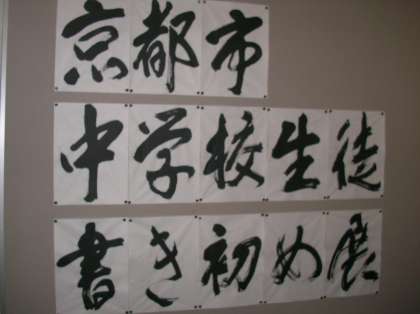 京都市
中学校生徒
書き初め展